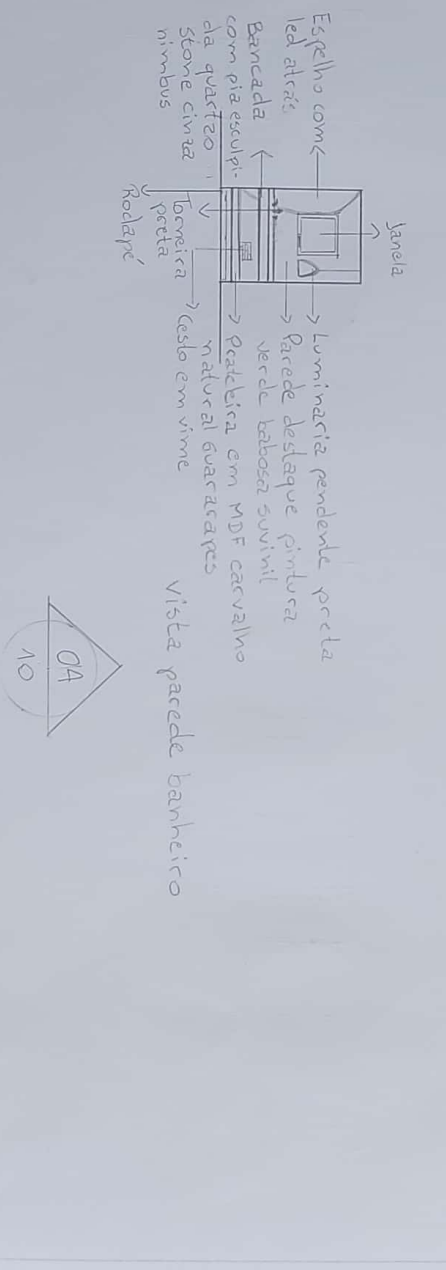 Janela
Espelho com
led atrás
Bancada
com pia esculpi-
da quartzo
stone cinza
nimbus
Luminaria pendente preta
Parede destaque pintura
verde babosa suvinil
Prateleira em MDF carvalho
natural Guararapes
Cesto em vime
Torneira
preta
Rodapé
vista parede banheiro
04
10